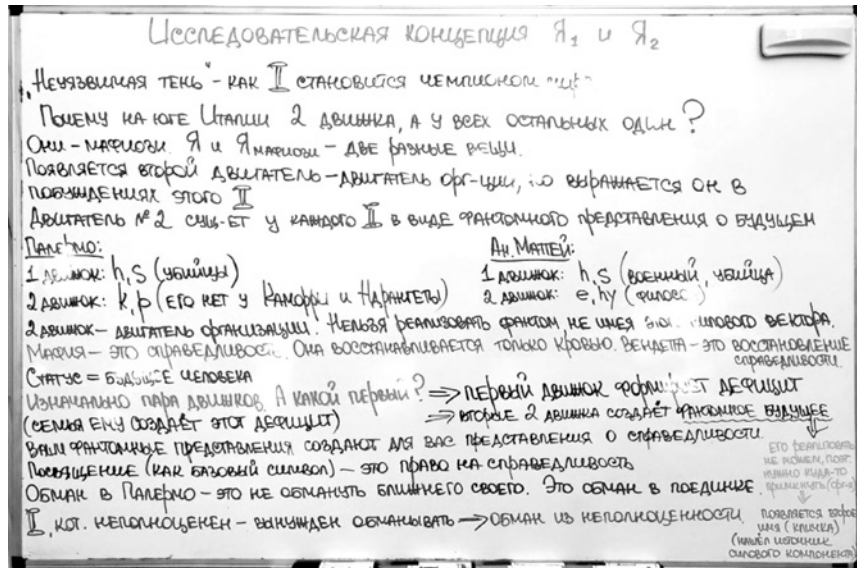 Исследовательская концепция Я₁ и Я₂
„Неуязвимая тень" - как I становится чемпионом
Почему на юге Италии 2 движка, а у всех остальных один?
Они - мафиози. Я и Я мафиози - две разные вещи.
Появляется второй двигатель - двигатель орг-ции, выражается он в
побуждениях этого I
Двигатель № 2 сущ-ет у каждого I в виде фантомного представления о будущем
Палермо:
1 движок: h, s (убийцы)
2 движок: k, p (его нет у Каморры и Ндрангеты)
Ан. Маттей:
1 движок: h, s (военный, убийца)
2 движок: e, hy
2 движок - двигатель организации. Нельзя реализовать фантом не имея силового вектора.
Мафия - это справедливость. Она восстанавливается только кровью. Вендета - это восстановление
справедливости.
Статус = будущее человека
Изначально пара движков. А какой первый? ⟹ первый движок формирует дефицит
(семья ему создаёт этот дефицит) ⟹ вторые 2 движка создаёт фантомное будущее
Ваши фантомные представления создают для вас представления о справедливости.
Посвящение (как базовый символ) - это право на справедливость
Обман в Палермо - это не обмануть ближнего своего. Это обман в поединке.
I, кот. неполноценен - вынужден обманывать → обман из неполноценности.
его реализовать
не можем, поэт.
нужно куда-то
примкнуть (орг-я)
появляется второе
имя (кличка)
(нашёл источник
силового компонента)